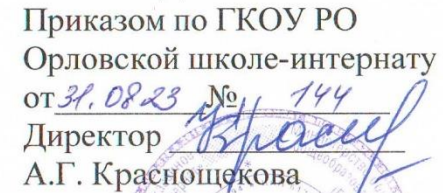 Приказом по ГКОУ РО
Орловской школе-интернату
от 31.08.23 № 144
Директор
А.Г. Краснощекова